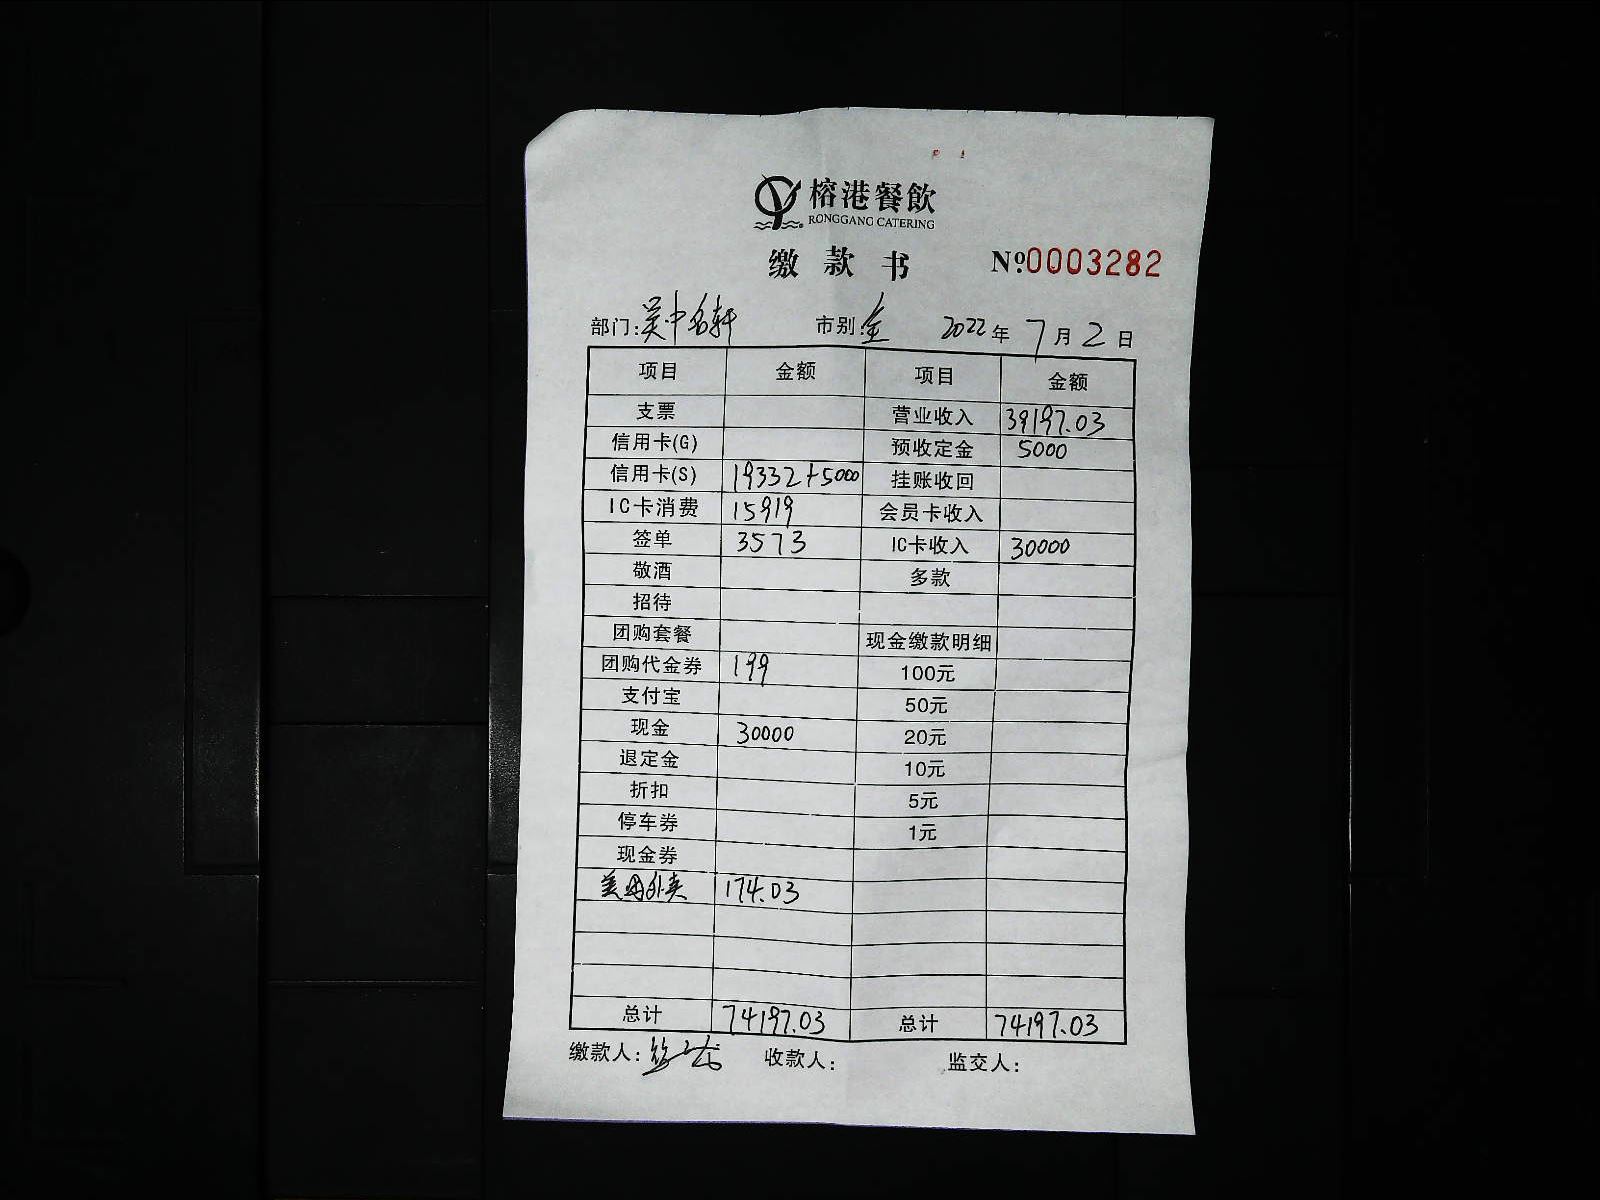 榕港餐飲
RONGGANG CATERING
缴款书 №0003282
部门:吴中名轩 市别:全 2022年7月2日
项目 金额 项目 金额
支票 营业收入 39197.03
信用卡(G) 预收定金 5000
信用卡(S) 19332+5000 挂账收回
IC卡消费 15919 会员卡收入
签单 3573 IC卡收入 30000
敬酒 多款
招待
团购套餐 现金缴款明细
团购代金券 199 100元
支付宝 50元
现金 30000 20元
退定金 10元
折扣 5元
停车券 1元
现金券
美团外卖 174.03
总计 74197.03 总计 74197.03
缴款人: 收款人: 监交人: